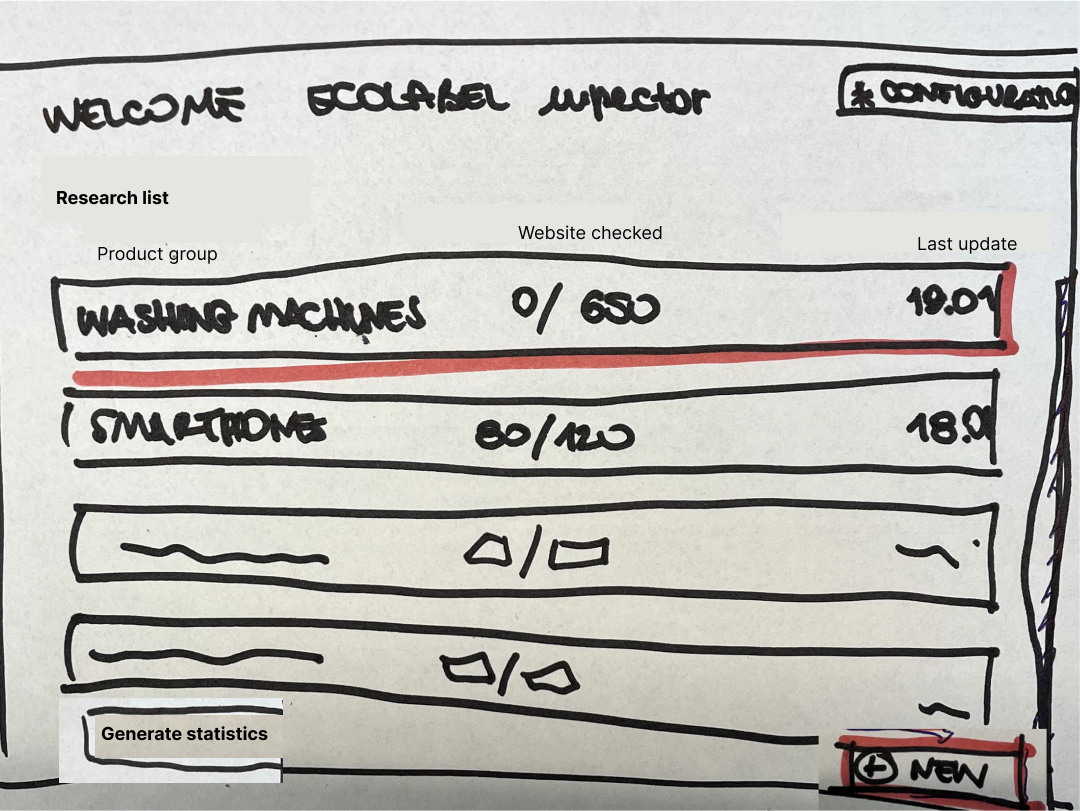 WELCOME ECOLABEL inspector
* CONFIGURATIO
Research list
Product group Website checked Last update
WASHING MACHINES 0/650 19.01
SMARTHONES 80/120 18.0
Generate statistics
+ NEW